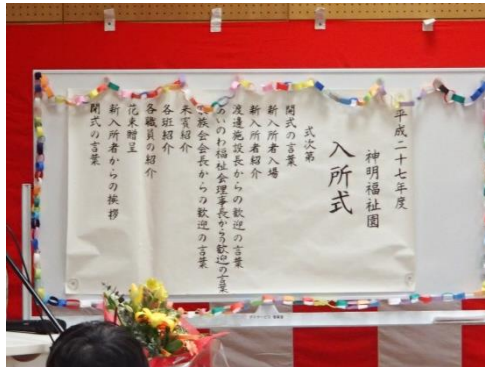 平成二十七年度
神明福祉園
入所式
式次第
開式の言葉
新入所者入場
新入所者紹介
渡邊施設長からの歓迎の言葉
あいのわ福祉会理事長からの歓迎の言葉
家族会会長からの歓迎の言葉
来賓紹介
各班紹介
各職員の紹介
花束贈呈
新入所者からの挨拶
閉式の言葉